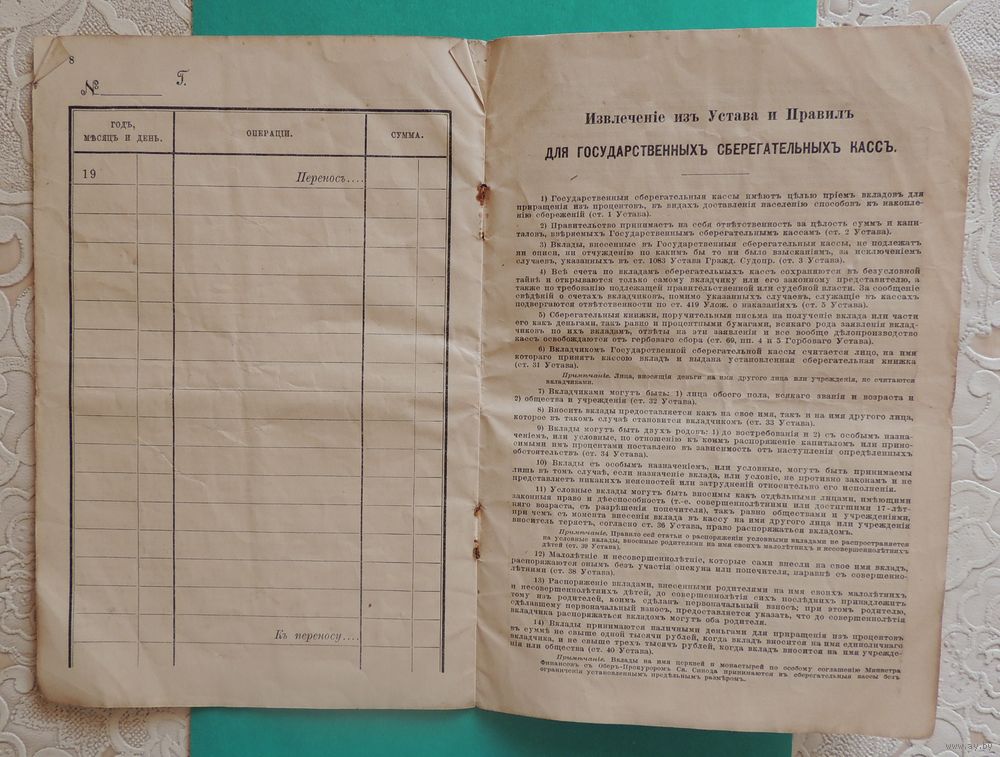 8
№ Г.
ГОДЪ, МѢСЯЦЪ И ДЕНЬ.
ОПЕРАЦІИ.
СУММА.
19
Переносъ....
Къ переносу....
Извлеченіе изъ Устава и Правилъ
ДЛЯ ГОСУДАРСТВЕННЫХЪ СБЕРЕГАТЕЛЬНЫХЪ КАССЪ.
1) Государственныя сберегательныя кассы имѣютъ цѣлью пріемъ вкладовъ для
приращенія изъ процентовъ, въ видахъ доставленія населенію способовъ къ накопле-
нію сбереженій (ст. 1 Устава).
2) Правительство принимаетъ на себя отвѣтственность за цѣлость суммъ и капи-
таловъ, ввѣряемыхъ Государственнымъ сберегательнымъ кассамъ (ст. 2 Устава).
3) Вклады, внесенные въ Государственныя сберегательныя кассы, не подлежатъ
ни описи, ни отчужденію по какимъ бы то ни было взысканіямъ, за исключеніемъ
случаевъ, указанныхъ въ ст. 1083 Устава Гражд. Судопр. (ст. 3 Устава).
4) Всѣ счета по вкладамъ сберегательныхъ кассъ сохраняются въ безусловной
тайнѣ и открываются только самому вкладчику или его законному представителю, а
также по требованію подлежащей правительственной или судебной власти. За сообщеніе
свѣдѣній о счетахъ вкладчиковъ, помимо указанныхъ случаевъ, служащіе въ кассахъ
подвергаются отвѣтственности по ст. 419 Улож. о наказаніяхъ (ст. 5 Устава).
5) Сберегательныя книжки, поручительныя письма на полученіе вклада или части
его какъ деньгами, такъ равно и процентными бумагами, всякаго рода заявленія вклад-
чиковъ по ихъ вкладамъ, отвѣты на эти заявленія и все вообще дѣлопроизводство
кассъ освобождаются отъ гербоваго сбора (ст. 69, пп. 4 и 5 Гербоваго Устава).
6) Вкладчикомъ Государственной сберегательной кассы считается лицо, на имя
котораго принятъ кассою вкладъ и выдана установленная сберегательная книжка
(ст. 31 Устава).
Примѣчаніе. Лица, вносящія деньги на имя другого лица или учрежденія, не считаются
вкладчиками.
7) Вкладчиками могутъ быть: 1) лица обоего пола, всякаго званія и возраста и
2) общества и учрежденія (ст. 32 Устава).
8) Вносить вклады предоставляется какъ на свое имя, такъ и на имя другого лица,
которое въ такомъ случаѣ становится вкладчикомъ (ст. 33 Устава).
9) Вклады могутъ быть двухъ родовъ: 1) до востребованія и 2) съ особымъ назна-
ченіемъ, или условные, по отношенію къ коимъ распоряженіе капиталомъ или прино-
симыми имъ процентами поставлено въ зависимость отъ наступленія опредѣленныхъ
обстоятельствъ (ст. 34 Устава).
10) Вклады съ особымъ назначеніемъ, или условные, могутъ быть принимаемы
лишь въ томъ случаѣ, если назначеніе вклада, или условіе, не противно законамъ и не
представляетъ никакихъ неясностей или затрудненій относительно его исполненія.
11) Условные вклады могутъ быть вносимы какъ отдѣльными лицами, имѣющими
законныя право и дѣеспособность (т.-е. совершеннолѣтними или достигшими 17-лѣт-
няго возраста, съ разрѣшенія попечителя), такъ равно обществами и учрежденіями,
при чемъ съ момента внесенія вклада въ кассу на имя другого лица или учрежденія
вноситель теряетъ, согласно ст. 36 Устава, право распоряжаться вкладомъ.
Примѣчаніе. Правило сей статьи о распоряженіи условными вкладами не распространяется
на условные вклады, вносимые родителями на имя своихъ малолѣтнихъ и несовершеннолѣтнихъ
дѣтей (ст. 39 Устава).
12) Малолѣтніе и несовершеннолѣтніе, которые сами внесли на свое имя вкладъ,
распоряжаются онымъ безъ участія опекуна или попечителя, наравнѣ съ совершенно-
лѣтними (ст. 38 Устава).
13) Распоряженіе вкладами, внесенными родителями на имя своихъ малолѣтнихъ
и несовершеннолѣтнихъ дѣтей, до совершеннолѣтія сихъ послѣднихъ принадлежитъ
тому изъ родителей, коимъ сдѣланъ первоначальный взносъ; при этомъ родителю,
сдѣлавшему первоначальный взносъ, предоставляется указать, что до совершеннолѣтія
вкладчика распоряжаться вкладомъ могутъ оба родителя.
14) Вклады принимаются наличными деньгами для приращенія изъ процентовъ
въ суммѣ не свыше одной тысячи рублей, когда вкладъ вносится на имя единоличнаго
вкладчика, и не свыше трехъ тысячъ рублей, когда вкладъ вносится на имя учрежде-
нія или общества (ст. 40 Устава).
Примѣчаніе. Вклады на имя церквей и монастырей по особому соглашенію Министра
Финансовъ съ Оберъ-Прокуроромъ Св. Синода принимаются въ сберегательныя кассы безъ
ограниченія установленнымъ предѣльнымъ размѣромъ.
www.ay.by